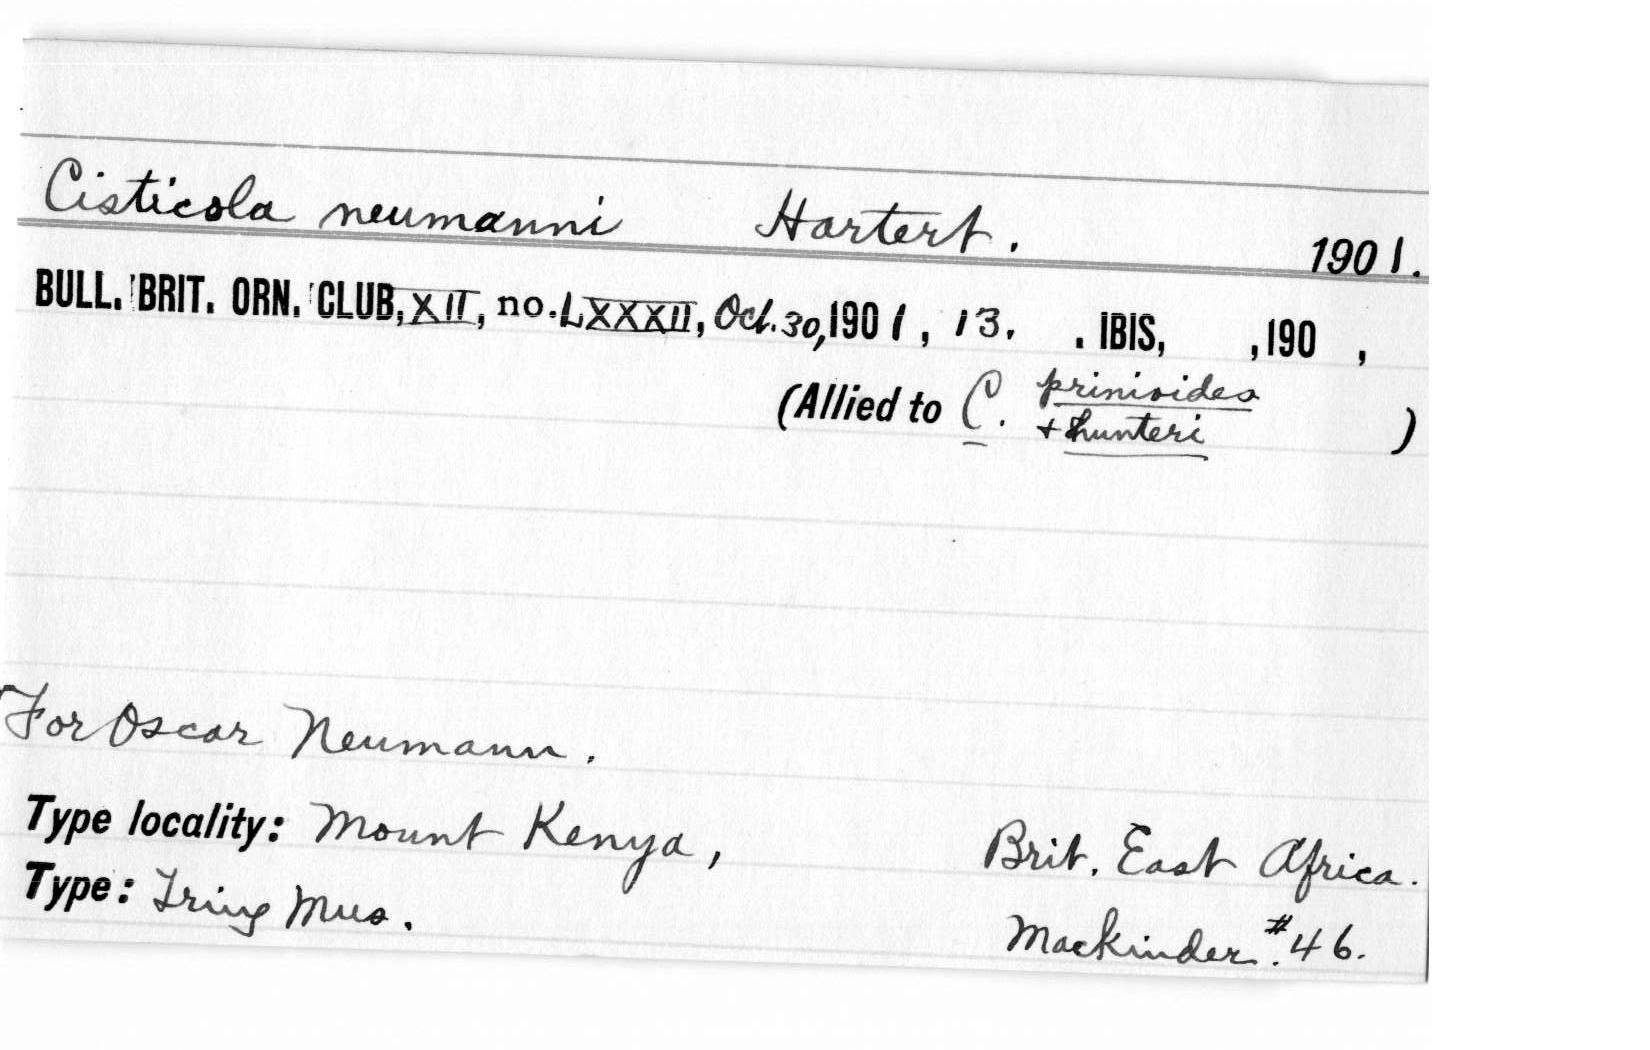 Cisticola neumanni Hartert. 1901.
BULL. BRIT. ORN. CLUB, XII, no. LXXXII, Oct. 30, 1901, 13. . IBIS, ,190 ,
(Allied to C. prinioides
+ hunteri )
For Oscar Neumann.
Type locality: Mount Kenya, Brit. East Africa.
Type: Tring Mus. Mackinder. #46.